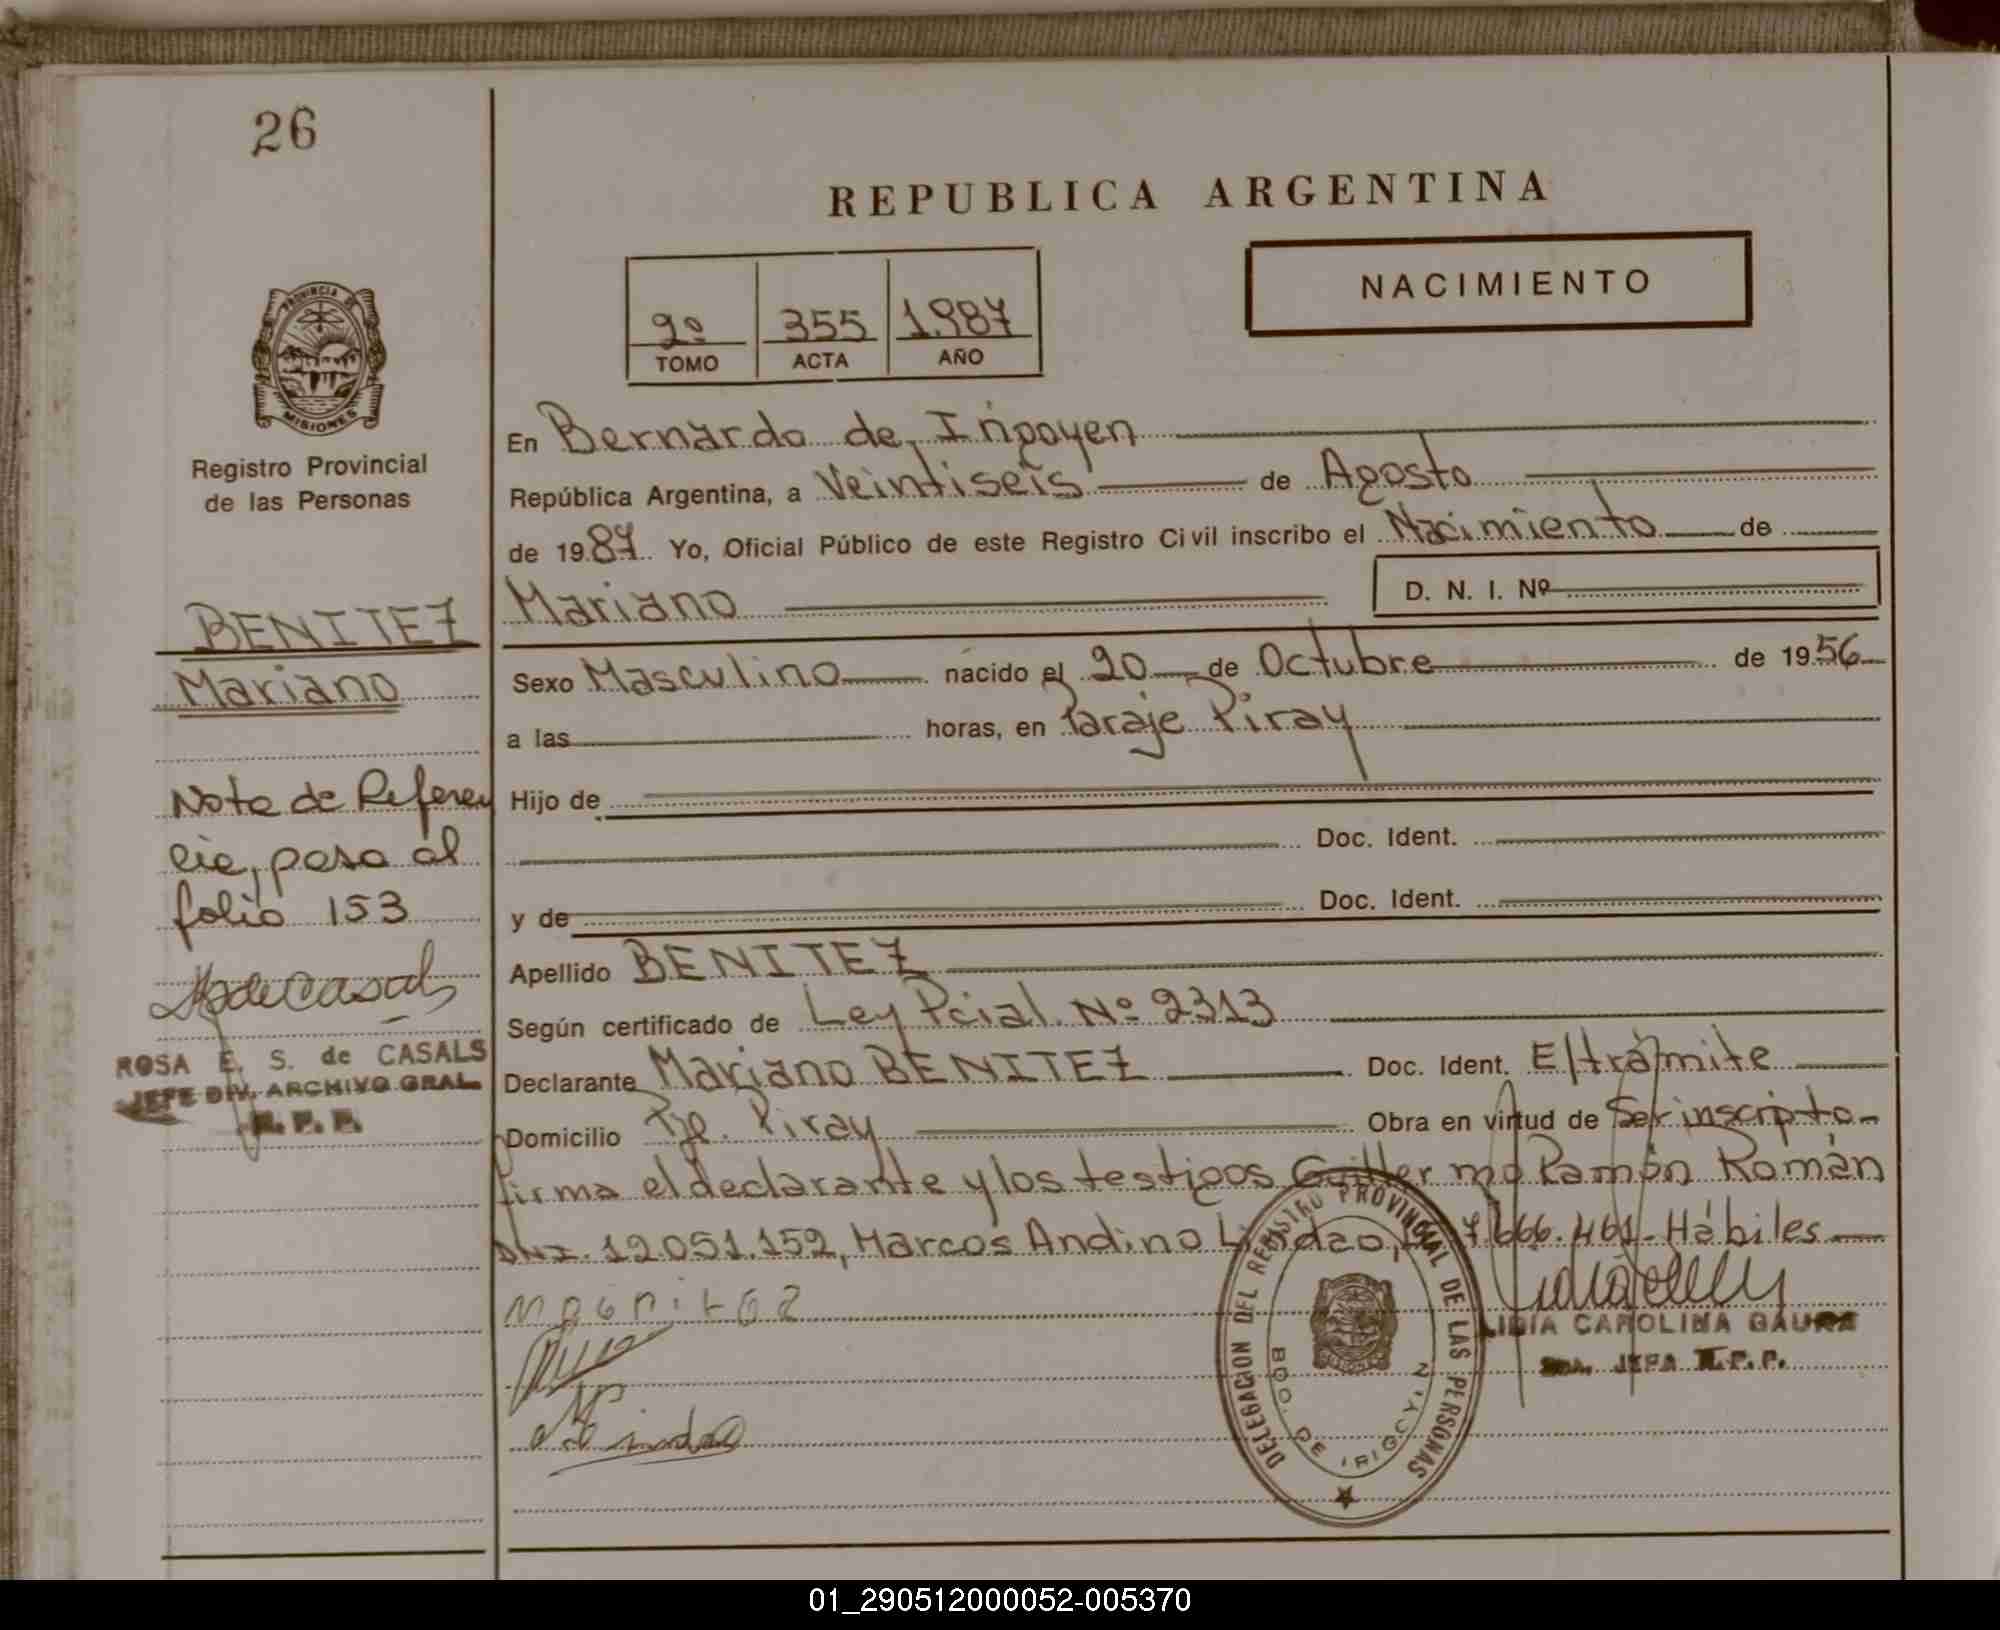 26
REPUBLICA ARGENTINA
NACIMIENTO
2º 355 1.987
TOMO ACTA AÑO
PROVINCIA DE
MISIONES
Registro Provincial
de las Personas
BENITEZ
Mariano
Nota de Referen
cia, pasa al
folio 153
ROSA E. S. de CASALS
JEFE DIV. ARCHIVO GRAL.
R.P.P.
En Bernardo de Irigoyen
República Argentina, a Veintiseis de Agosto
de 1987 Yo, Oficial Público de este Registro Civil inscribo el Nacimiento de
Mariano D. N. I. Nº
Sexo Masculino nacido el 20 de Octubre de 1956
a las horas, en Paraje Piray
Hijo de
Doc. Ident.
y de Doc. Ident.
Apellido BENITEZ
Según certificado de Ley Pcial. Nº 2313
Declarante Mariano BENITEZ Doc. Ident. E/trámite
Domicilio Pje. Piray Obra en virtud de Ser inscripto-
firma el declarante y los testigos Guillermo Ramón Román
DNI. 12051.152, Marcos Andino 7.666.461. Hábiles
LIDIA CAROLINA GAURA
JEFA R.P.P.
DELEGACION DEL REGISTRO PROVINCIAL DE LAS PERSONAS
BDO. DE IRIGOYEN
01_290512000052-005370